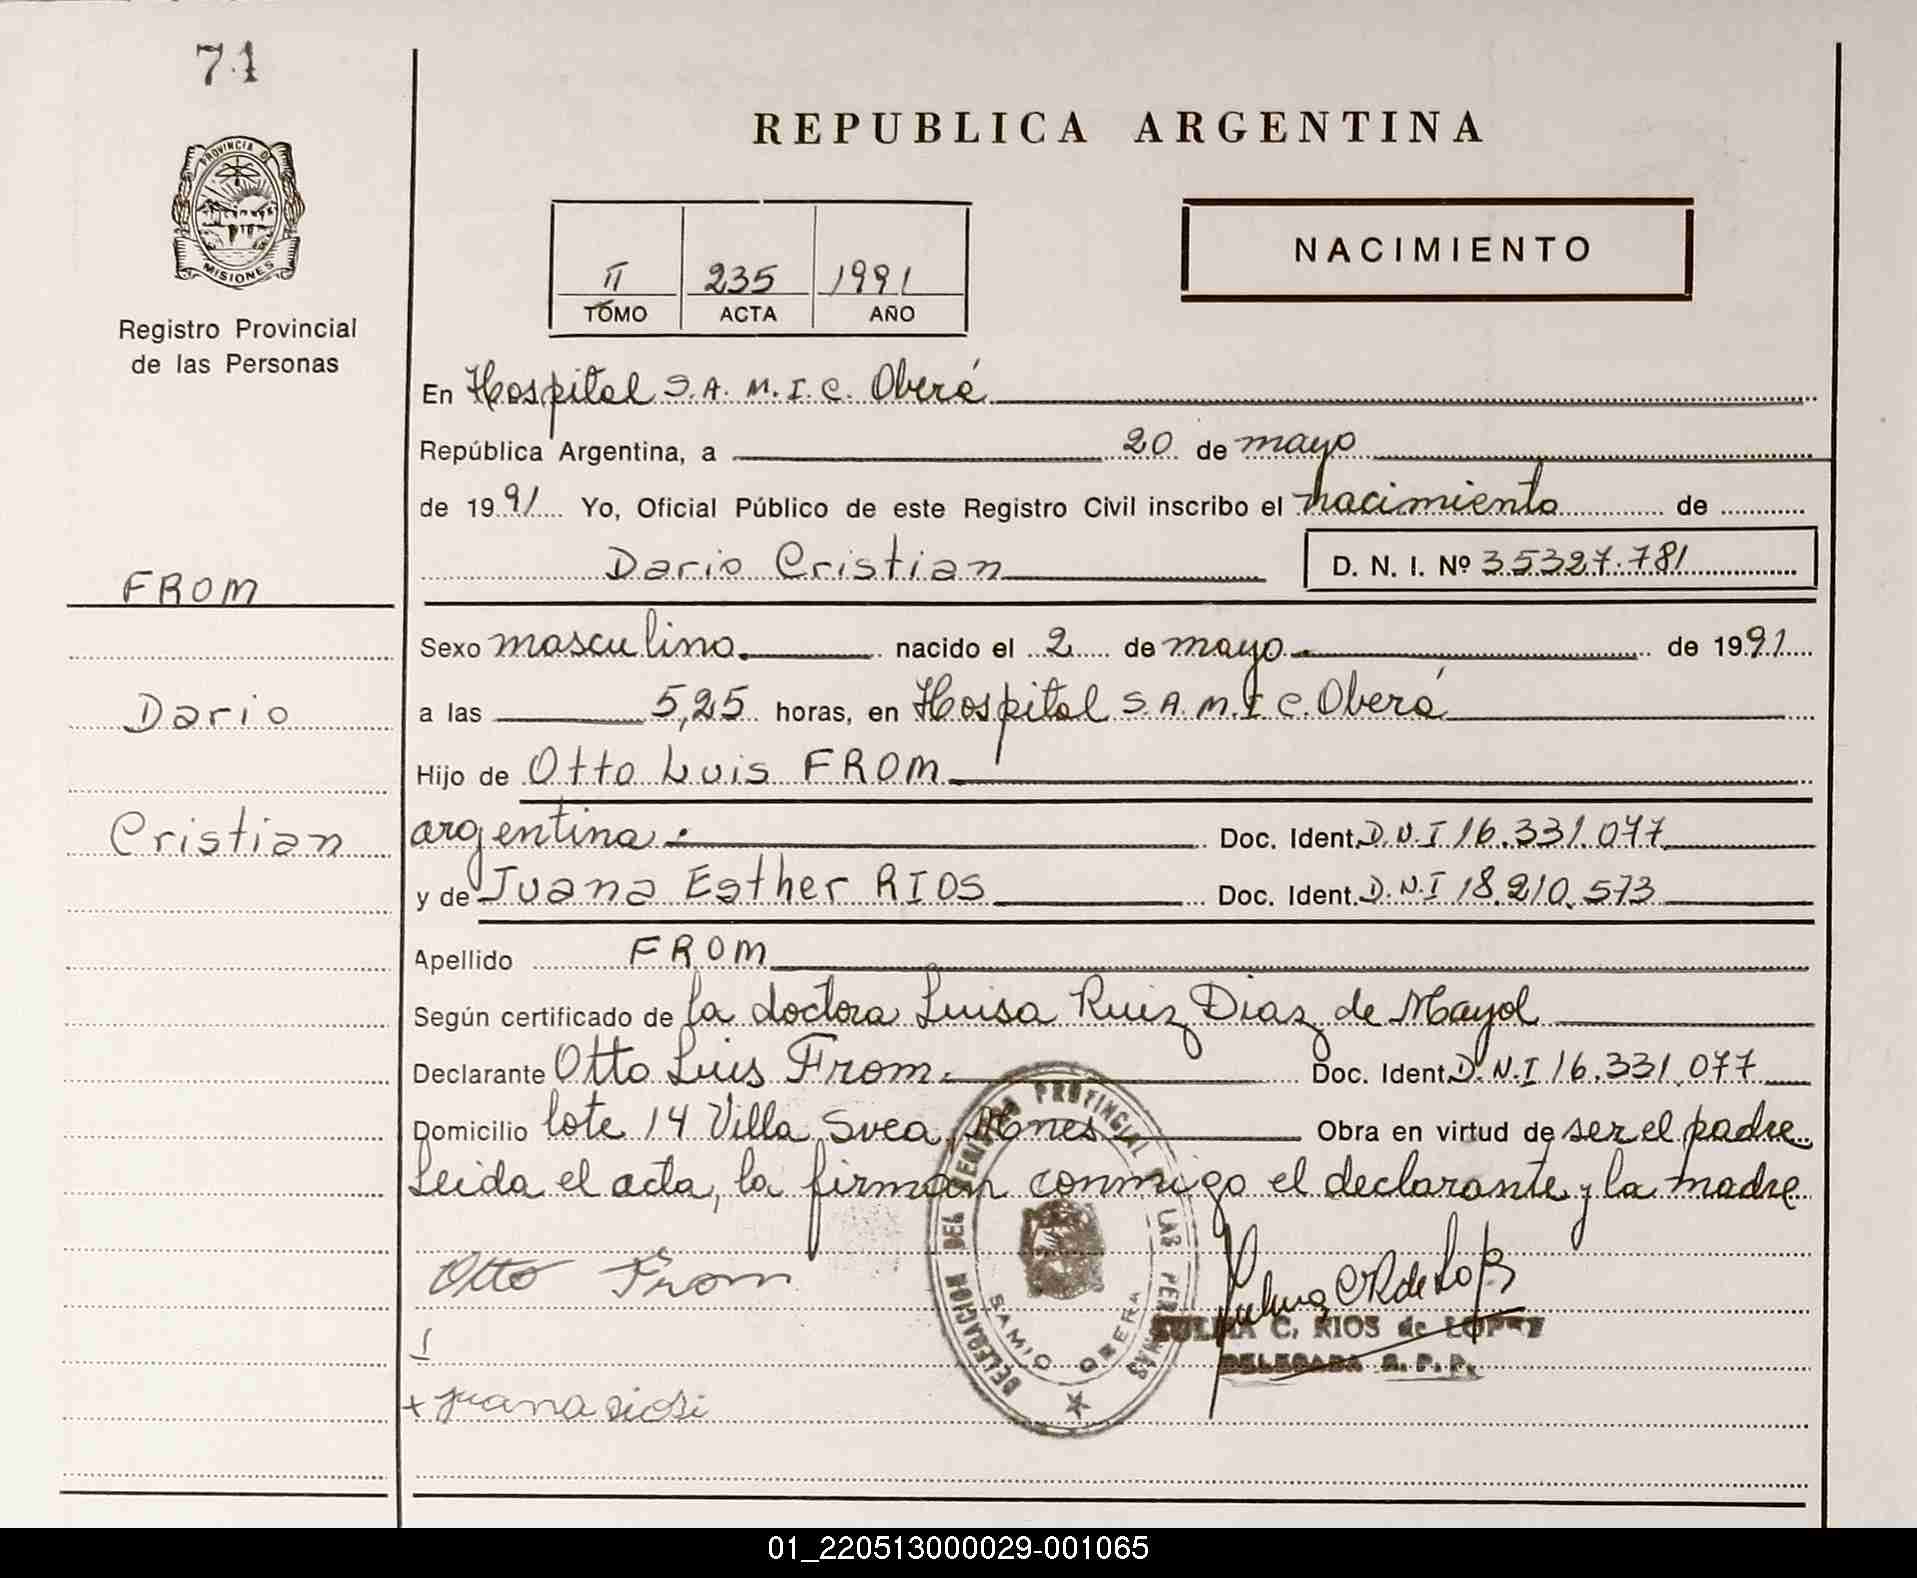 71
PROVINCIA DE
MISIONES
Registro Provincial
de las Personas
REPUBLICA ARGENTINA
NACIMIENTO
II 235 1991
TOMO ACTA AÑO
En Hospital S.A.M.I.C. Oberá
República Argentina, a 20 de mayo
de 1991 Yo, Oficial Público de este Registro Civil inscribo el nacimiento de
Dario Cristian D. N. I. Nº 35327.781
FROM
Sexo masculino. nacido el 2 de mayo. de 1991
Dario
a las 5,25 horas, en Hospital S.A.M.I.C. Oberá
Hijo de Otto Luis FROM
Cristian
argentina. Doc. Ident. D.N.I 16.331.077
y de Juana Esther RIOS Doc. Ident. D.N.I 18.210.573
Apellido FROM
Según certificado de la doctora Luisa Ruiz Diaz de Mayol
Declarante Otto Luis From. Doc. Ident. D.N.I 16.331.077
Domicilio lote 14 Villa Svea, Mnes Obra en virtud de ser el padre.
Leida el acta, la firman conmigo el declarante y la madre
Otto From
DELEGACION DEL REGISTRO PROVINCIAL DE LAS PERSONAS
SAMIC OBERA
ZULMA C. RIOS de LOPEZ
DELEGADA R. P. P.
+ juana
01_220513000029-001065